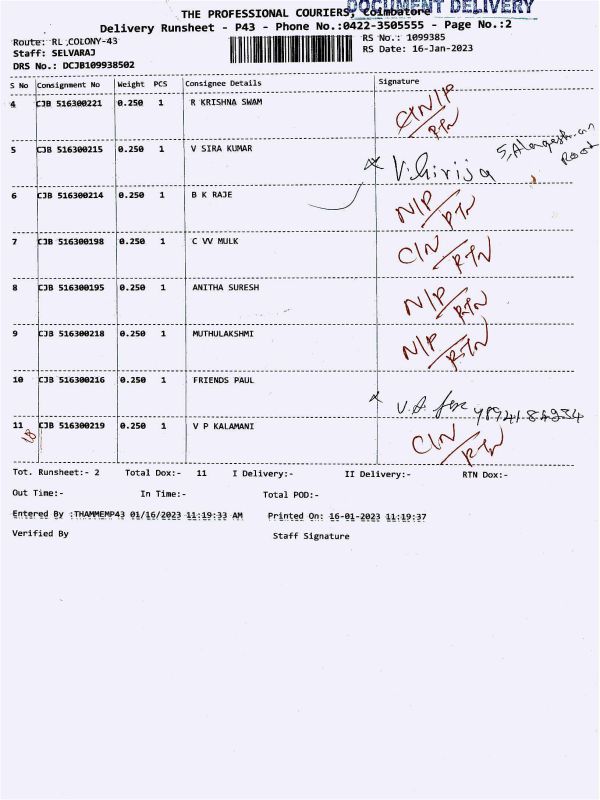 DOCUMENT DELIVERY
THE PROFESSIONAL COURIERS, Coimbatore
Delivery Runsheet - P43 - Phone No.:0422-3505555 - Page No.:2
Route: RL COLONY-43 RS No.: 1099385
Staff: SELVARAJ RS Date: 16-Jan-2023
DRS No.: DCJB109938502
S No Consignment No Weight PCS Consignee Details Signature
4 CJB 516300221 0.250 1 R KRISHNA SWAM
C/N/P
RTN
5 CJB 516300215 0.250 1 V SIRA KUMAR
6 CJB 516300214 0.250 1 B K RAJE
N/P/RTN
7 CJB 516300198 0.250 1 C VV MULK
C/N/RTN
8 CJB 516300195 0.250 1 ANITHA SURESH
N/P/RTN
9 CJB 516300218 0.250 1 MUTHULAKSHMI
N/P/RTN
10 CJB 516300216 0.250 1 FRIENDS PAUL
11 CJB 516300219 0.250 1 V P KALAMANI
18
C/N/RTN
Tot. Runsheet:- 2 Total Dox:- 11 I Delivery:- II Delivery:- RTN Dox:-
Out Time:- In Time:- Total POD:-
Entered By :THAMMEMP43 01/16/2023 11:19:33 AM Printed On: 16-01-2023 11:19:37
Verified By Staff Signature